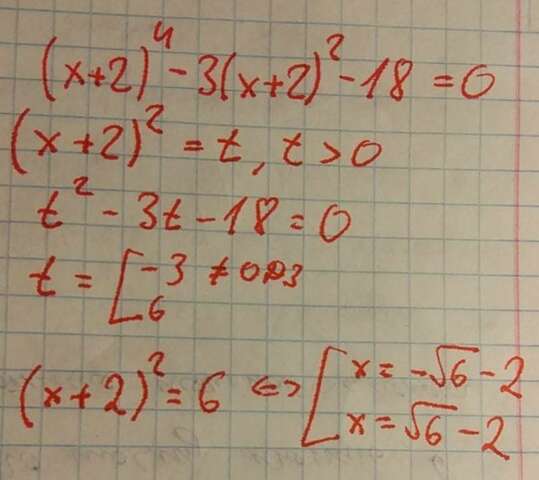 (x+2)⁴ - 3(x+2)² - 18 = 0
(x+2)² = t, t > 0
t² - 3t - 18 = 0
t = [ -3 ∉ ОДЗ
6
(x+2)² = 6 <=> [ x = -√6 - 2
x = √6 - 2